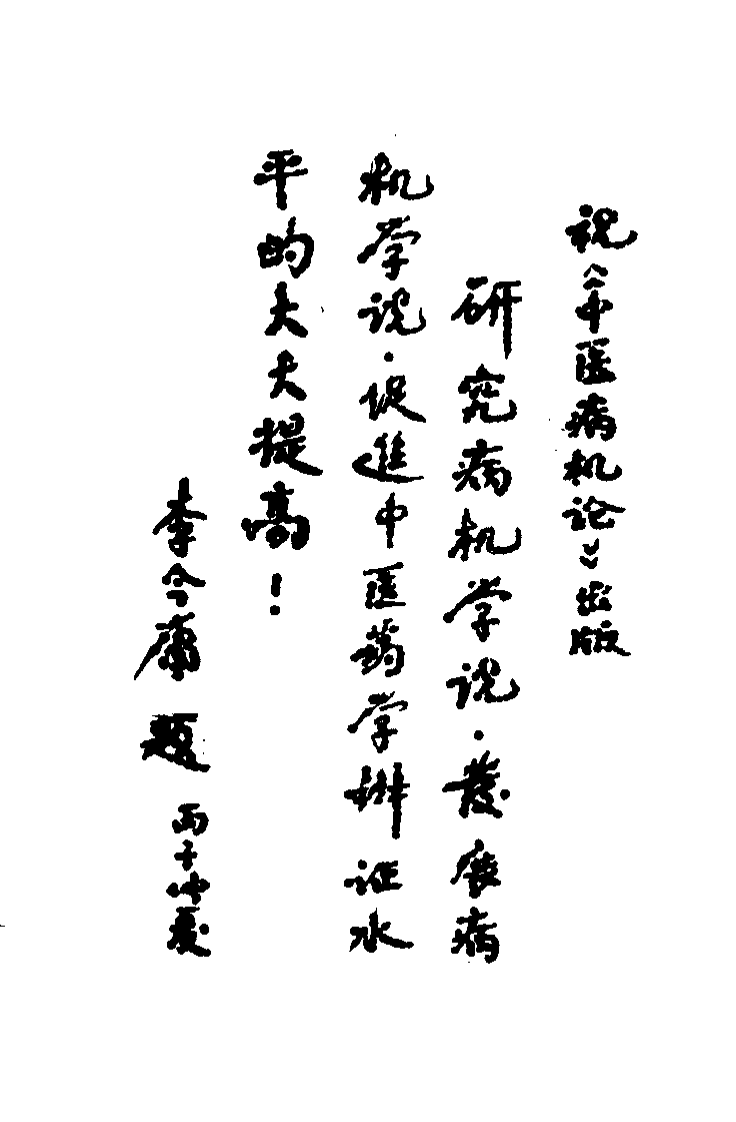 祝《中医病机论》出版
研究病机学说·發展病
机学说·促進中医药学辨证水
平的大大提高！
李今庸 题 丙子仲夏